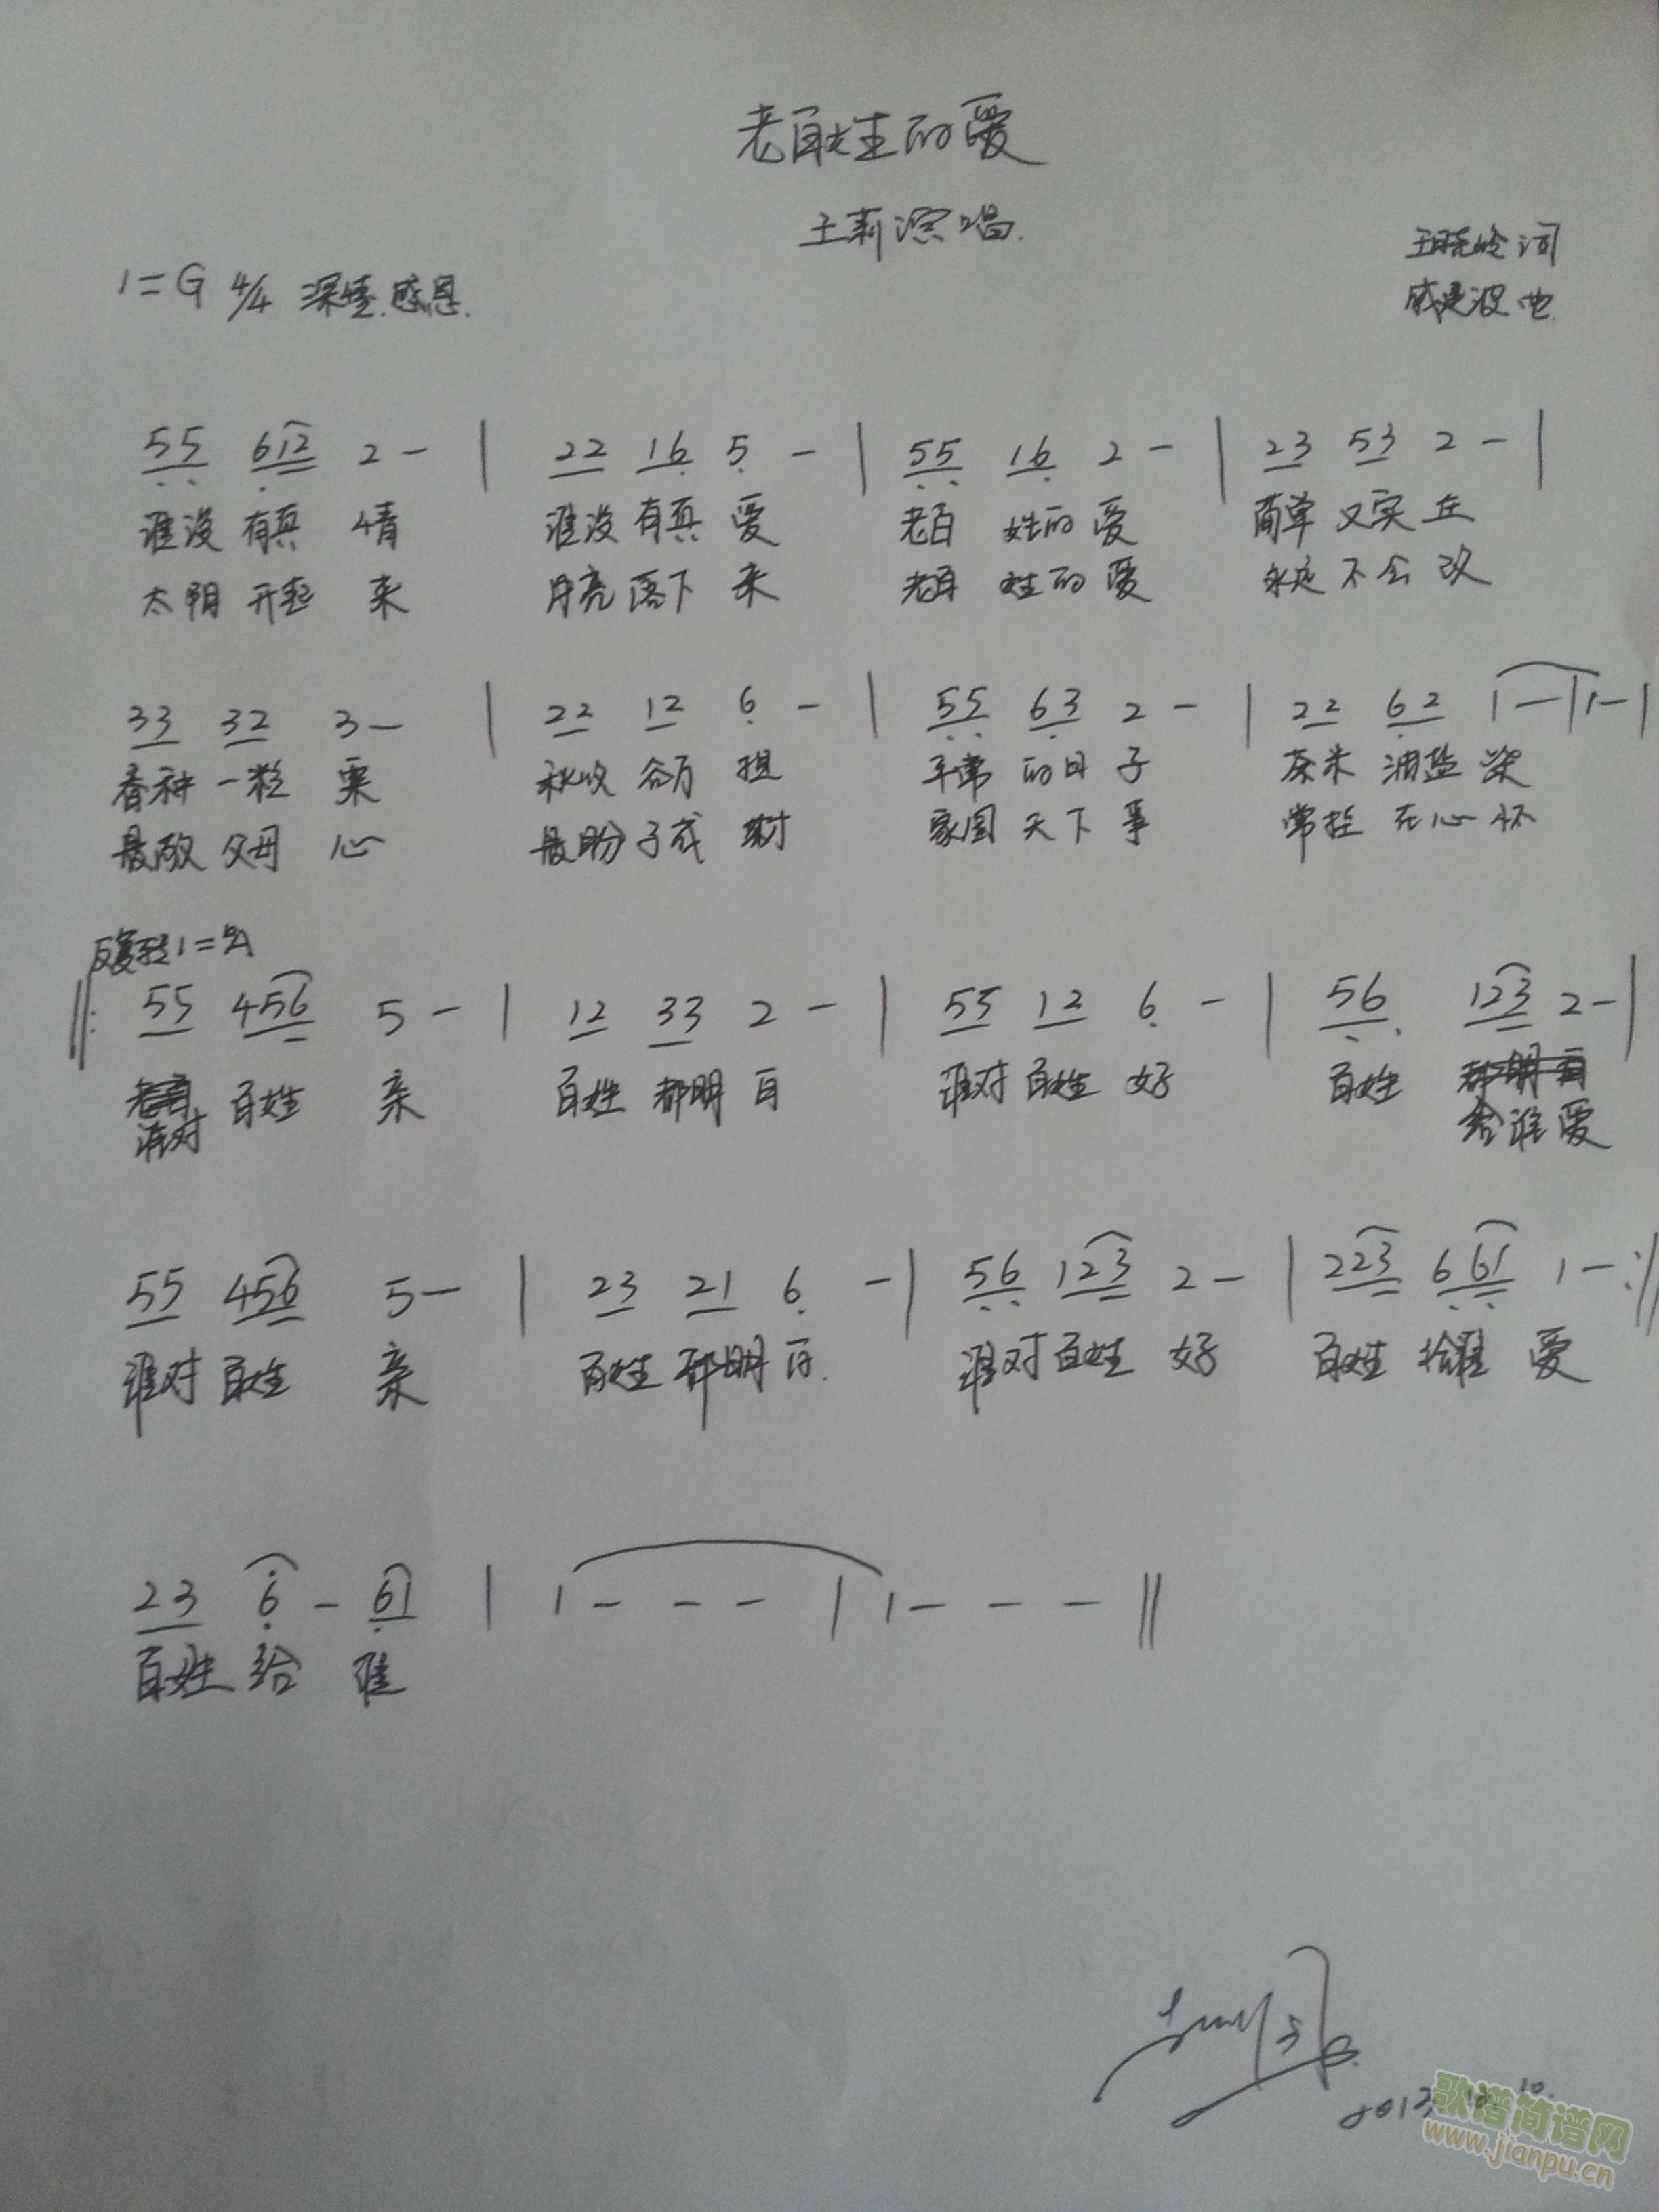 老百姓的爱
王莉演唱.
王晓岭 词
1=G 4/4 深情.感恩.
戚建波 曲
55 612 2 - | 22 16 5 - | 55 16 2 - | 23 53 2 - |
谁没 有真 情 谁没 有真 爱 老百 姓的 爱 简单 又实 在
太阳 升起 来 月亮 落下 来 老百 姓的 爱 永远 不会 改
33 32 3 - | 22 12 6 - | 55 63 2 - | 22 62 1 - | 1 - |
春种 一粒 粟 秋收 谷万 担 平常 的日 子 茶米 油盐 柴
最敬 父母 心 最盼 子成 材 家国 天下 事 常挂 在心 怀
反复转1=bA
‖: 55 456 5 - | 12 33 2 - | 55 12 6 - | 56 123 2 - |
百姓 亲 百姓 都明 白 谁对 百姓 好 百姓 都明 白
谁对 给谁爱
55 456 5 - | 23 21 6 - | 56 123 2 - | 223 661 1 - :‖
谁对 百姓 亲 百姓 都明 白. 谁对 百姓 好 百姓 给谁 爱
23 6 - 61 | 1 - - - | 1 - - - ‖
百姓 给 谁
歌谱简谱网
www.jianpu.cn